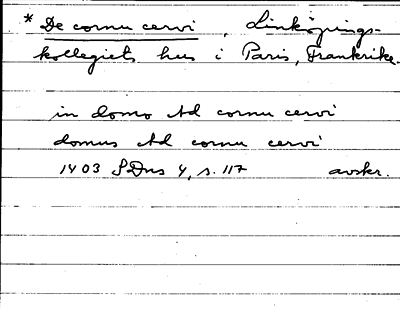 * De cornu cervi, Linköpings-
kollegiets hus i Paris, Frankrike.
in domo Ad cornu cervi
domus Ad cornu cervi
1403 SDns 4, s. 117 avskr.